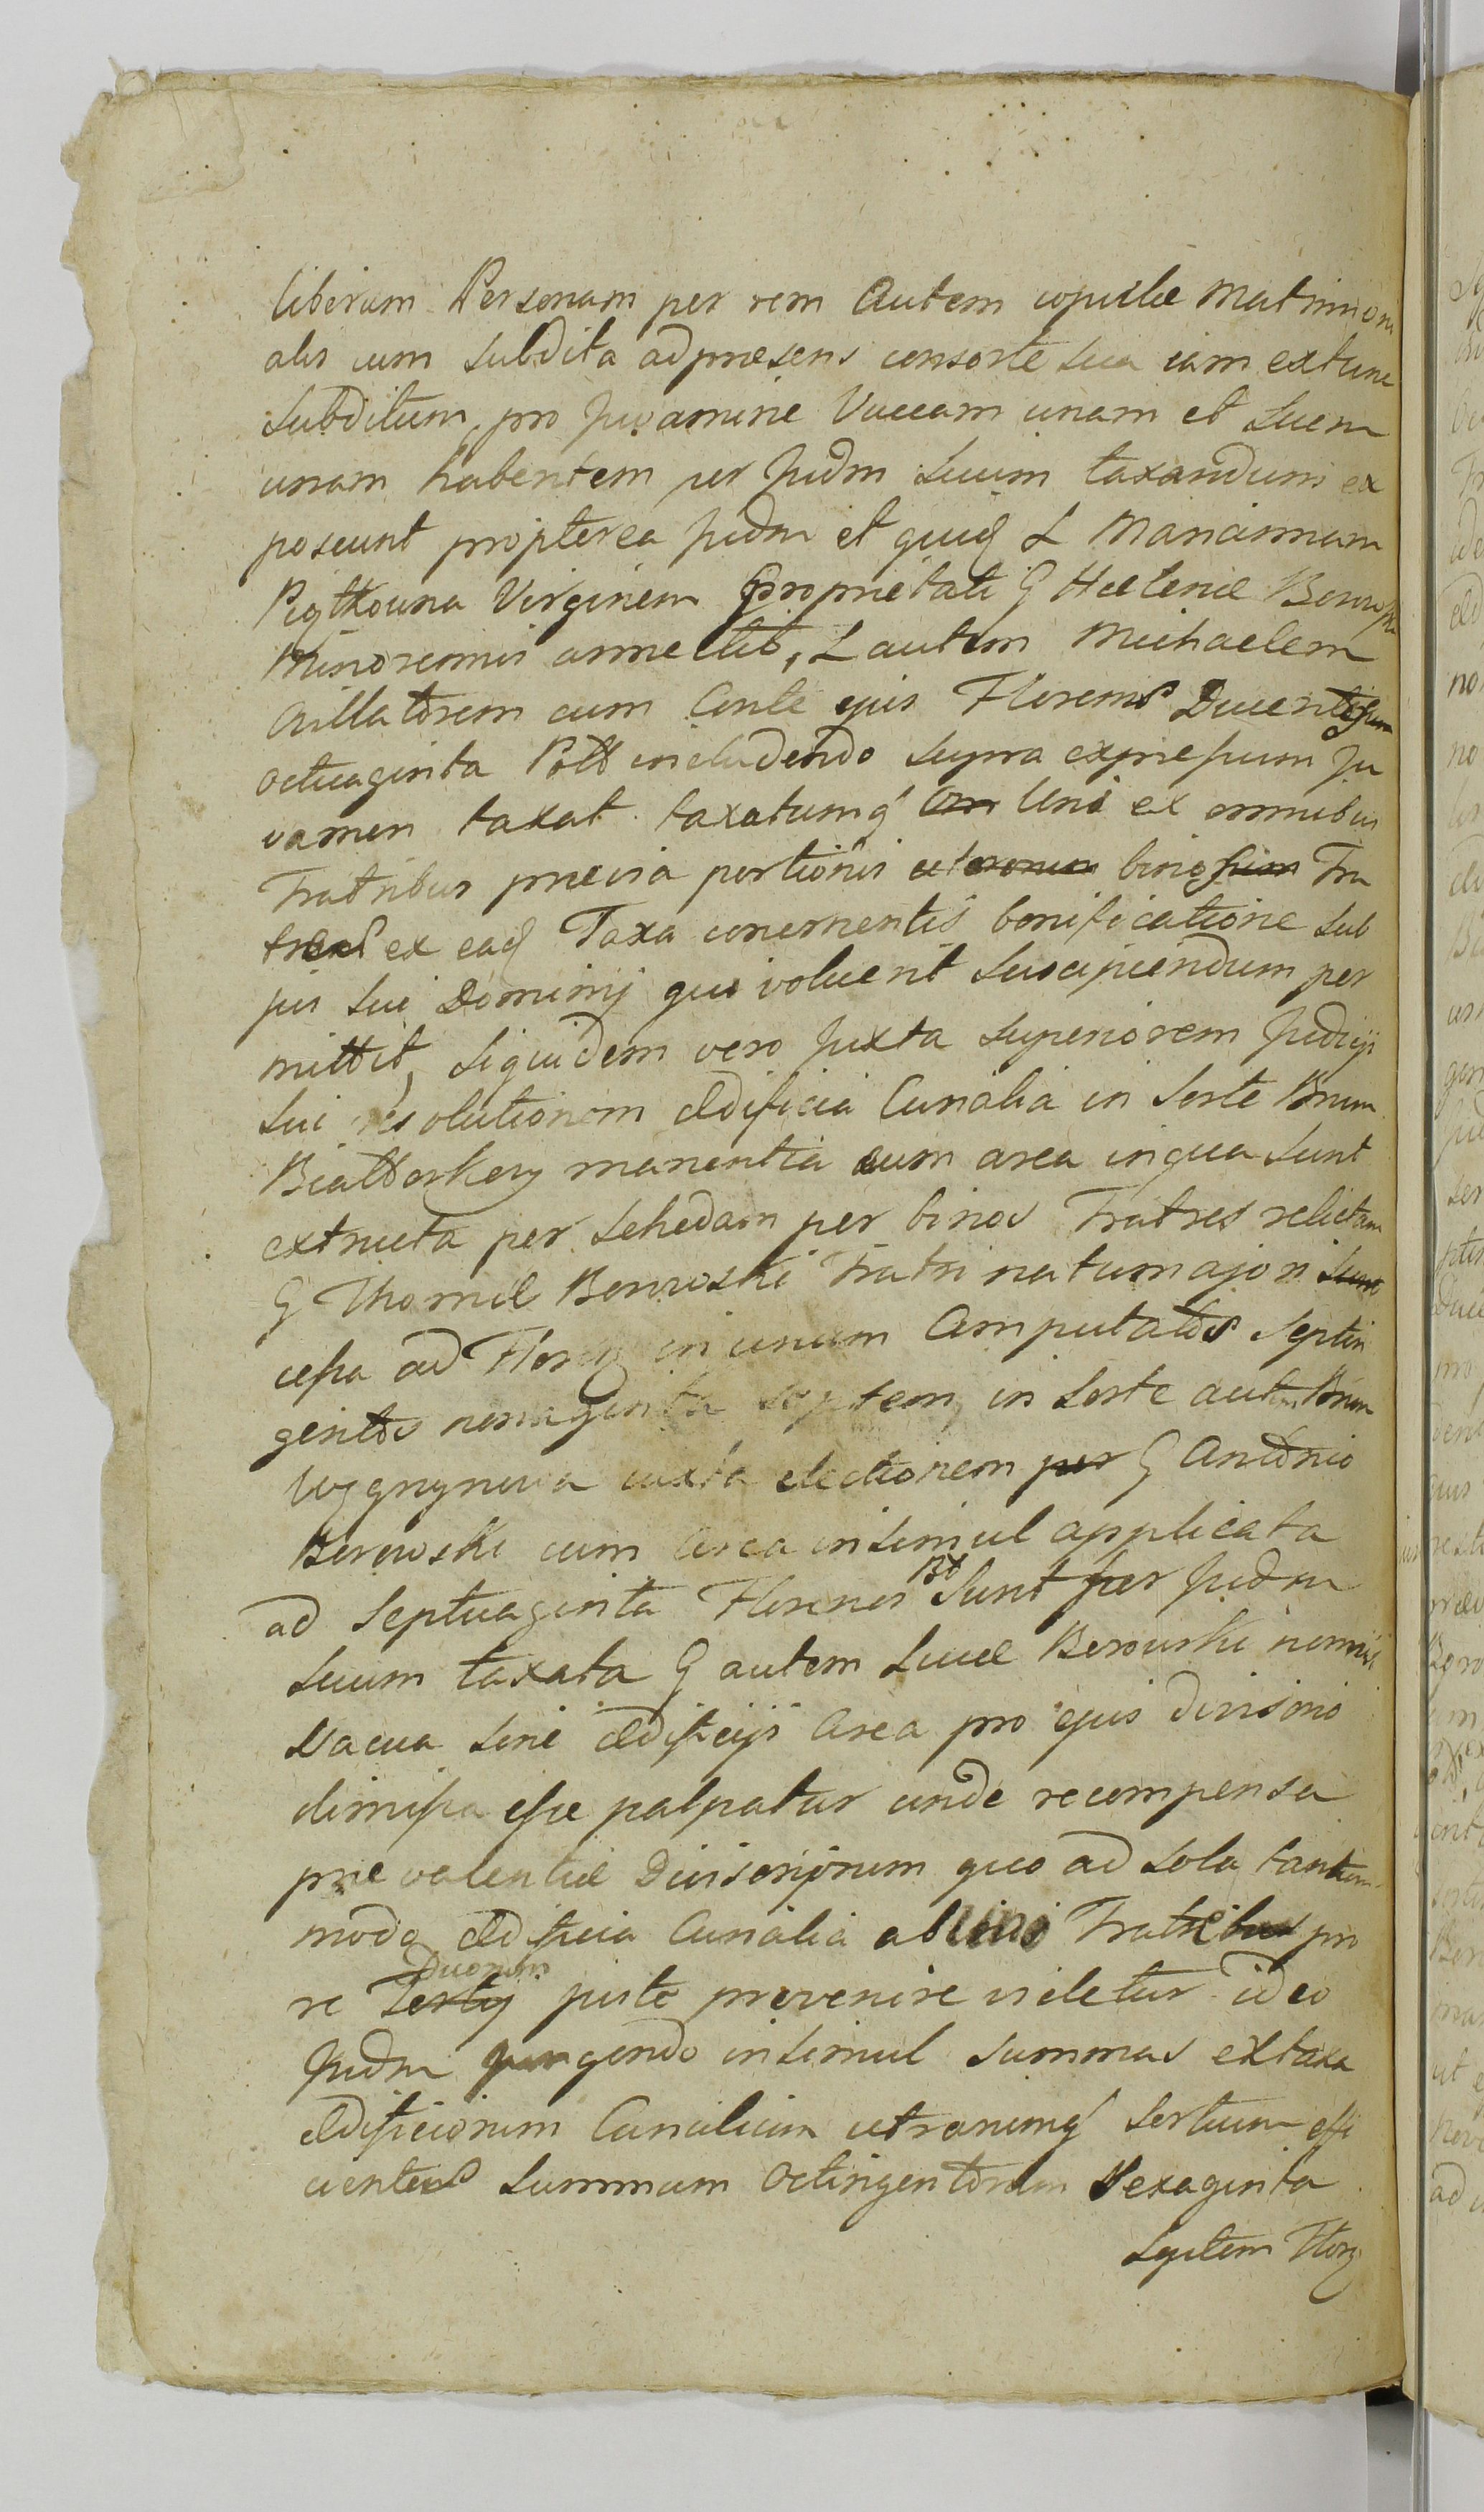 liberam Personam per rem autem copulæ Matrimoni
alis cum subdita adpræsens consorte sua iam extunc
subditum, pro Juvamine Vaccam unam et suem
unam habentem per Judm suum taxandum ex
poscunt propterea Judm et quid L Mariannam
Piątkowna Virginem Proprietati G Hælenæ Borows
Minorennis annectit, L autem Michaelem
Oillatorem cum Conte ejus Florenos Ducentos
octuaginta Poll includendo supra expressum Ju
vamen taxat taxatumq Uni ex omnibus
Fratribus prævia portionis binos Fra
tres ex ead Taxa concernentis bonificatione sub
jus sui Dominij qui voluerit suscipiendum per
mittit, siquidem vero Juxta superiorem Judicij
sui resolutionem Ædificia Curialia in sorte Bnum
Białoskory manentia cum area inqua sunt
extructa per schedam per binos Fratres relictam
G Thomæ Borowski Fratri natumajori
cessa ad Florg in unum Computatos septin
gentos nonaginta septem, in sorte autem Bnum
Węgrzynowa iuxta electionem per G Antonio
Borowski cum area insimul applicata
ad septuaginta Florenos Pt sunt per Judm
suum taxata G autem Lucæ Borowski
Vacua sine Ædificijs area pro ejus divisono
dimissa esse palpatur unde recompensa
prævalentiæ Divisorionum quo ad sola tantum
modo Ædificia Curialia ab uno Fratre pro
re Sorty Duorum juste provenire videtur ideo
Judm jungendo insimul summas ex taxa
Ædificiorum Curialium utrarumq sortium effi
cientes summam Octingentorum Sexaginta
Septem Florg